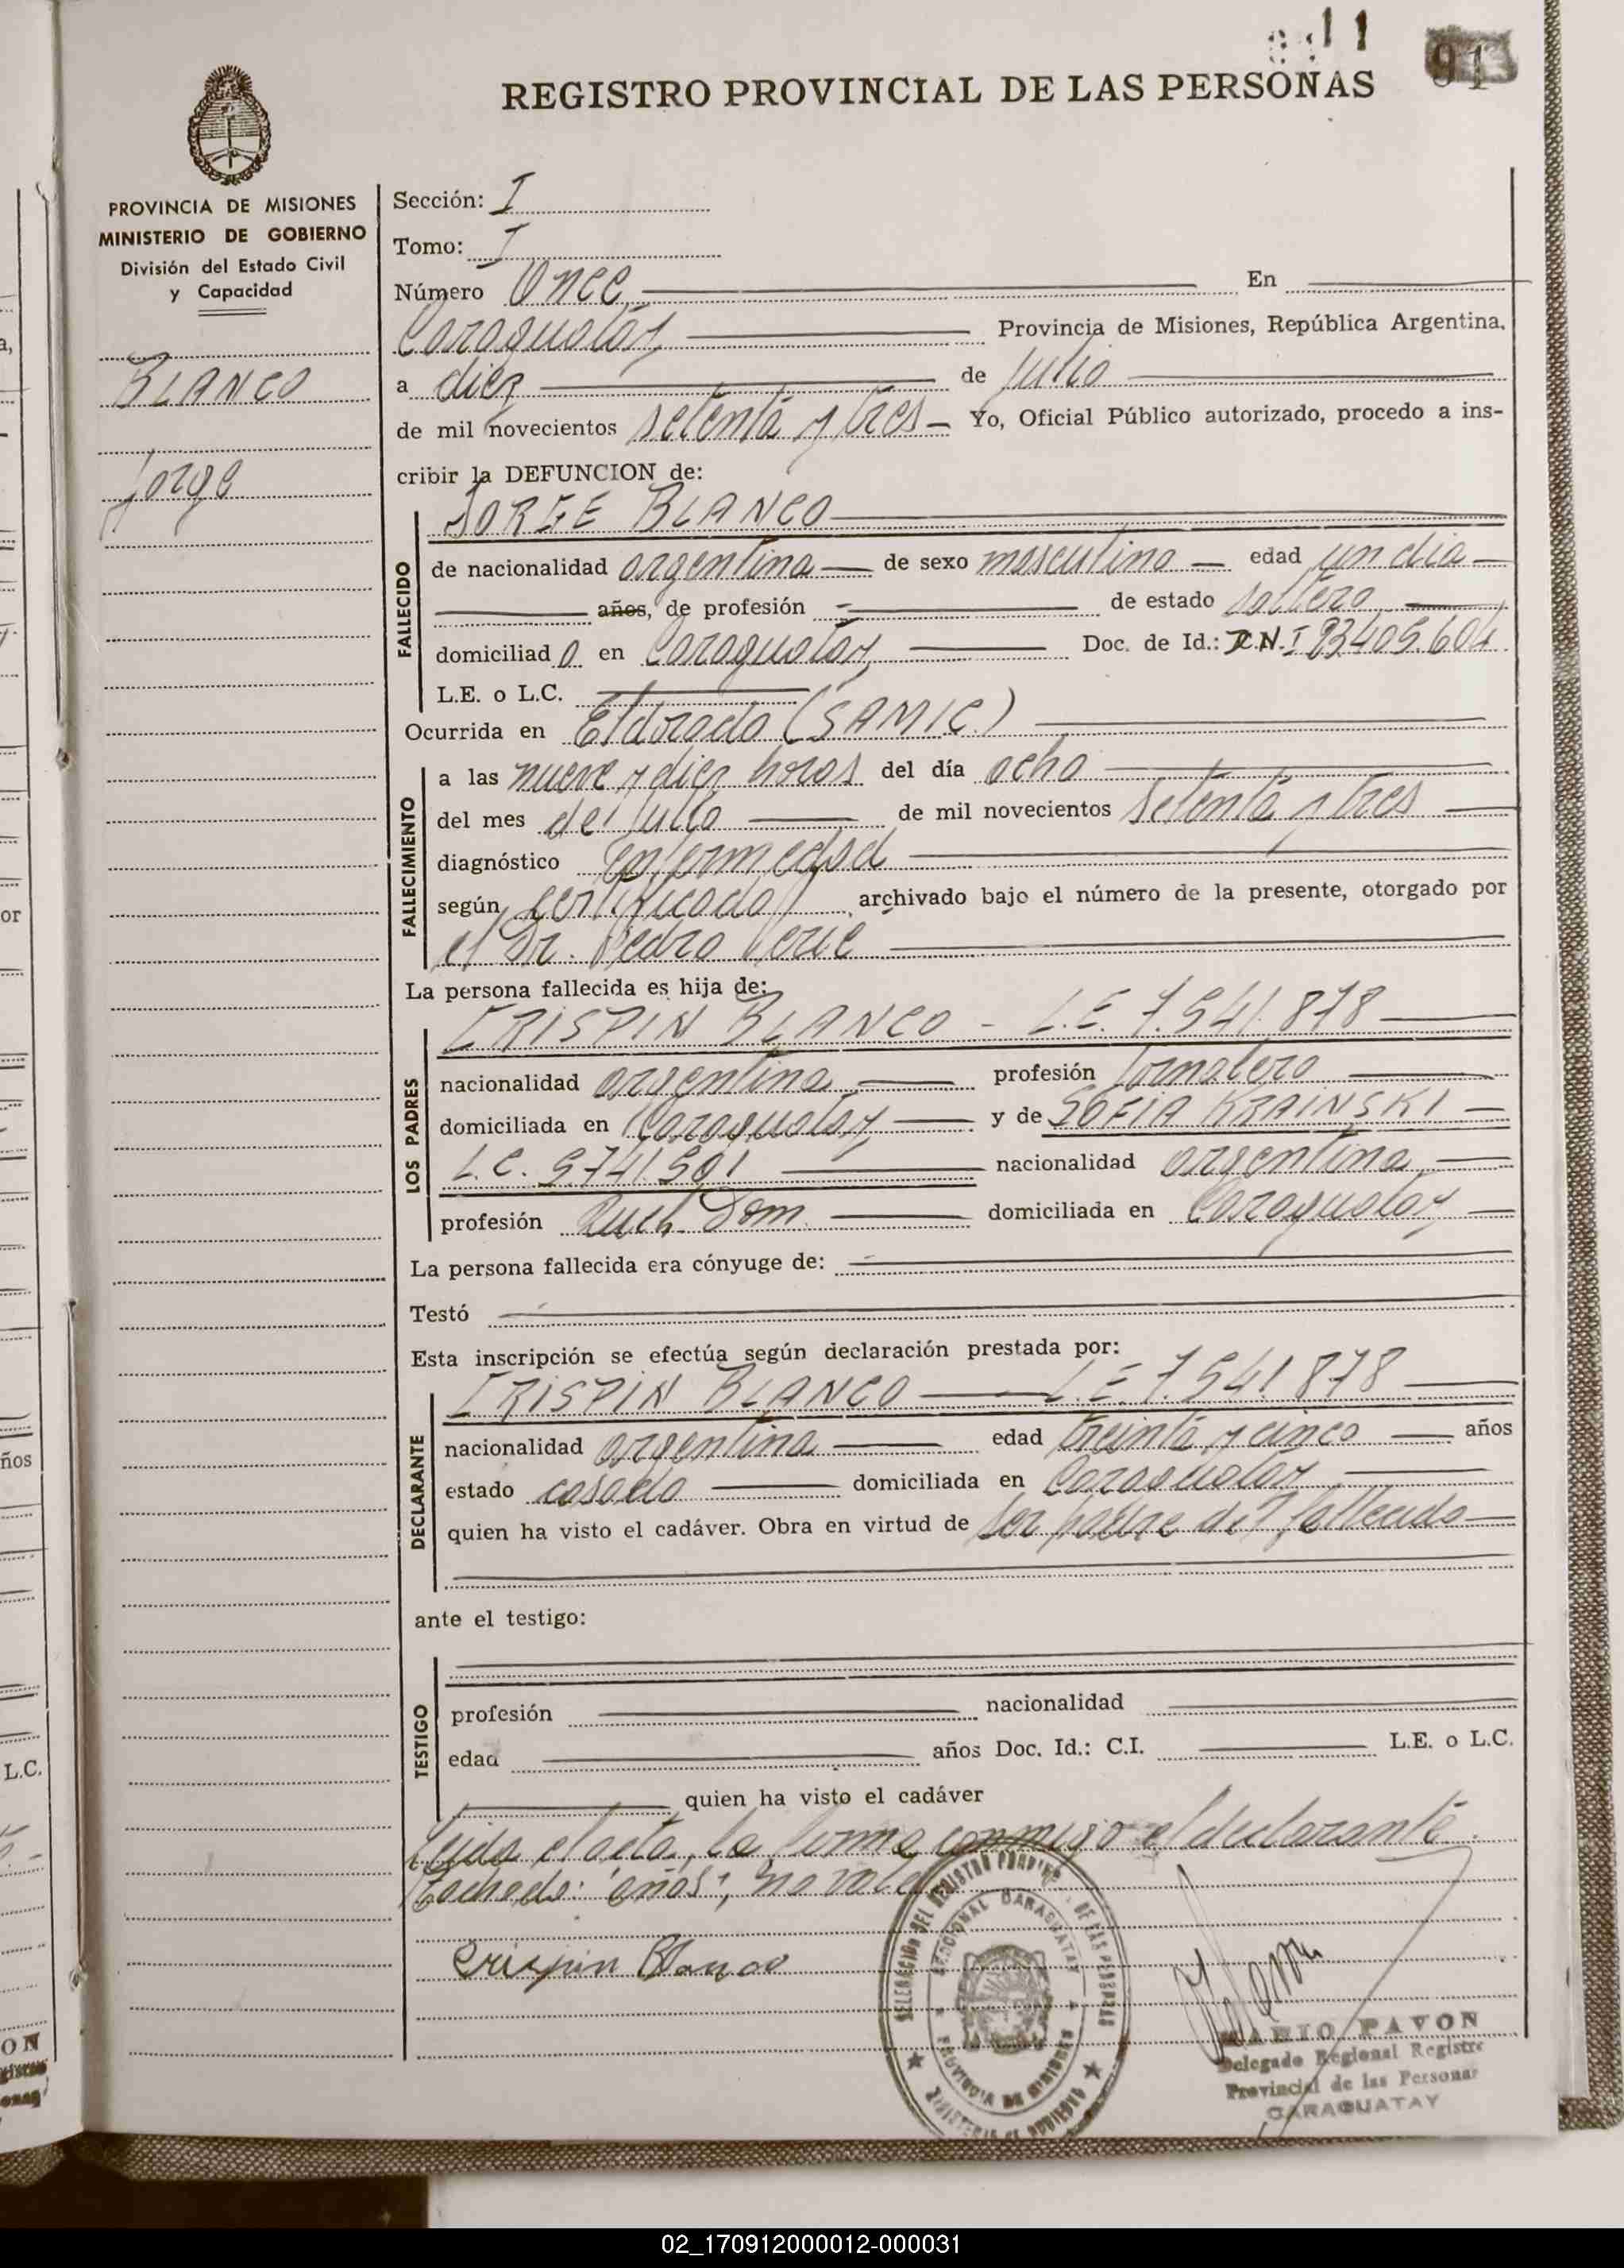 11
91
REGISTRO PROVINCIAL DE LAS PERSONAS
PROVINCIA DE MISIONES
MINISTERIO DE GOBIERNO
División del Estado Civil
y Capacidad
BLANCO
Jorge
Sección: I
Tomo: I
Número Once En
Caraguatay Provincia de Misiones, República Argentina,
a diez de julio
de mil novecientos setenta y tres Yo, Oficial Público autorizado, procedo a ins-
cribir la DEFUNCION de:
FALLECIDO
JORGE BLANCO
de nacionalidad argentina de sexo masculino edad un dia
años, de profesión de estado soltero
domiciliado en Caraguatay Doc. de Id.: D.N.I 23.405.604
L.E. o L.C.
Ocurrida en Eldorado (SAMIC)
FALLECIMIENTO
a las nueve y diez horas del día ocho
del mes de julio de mil novecientos setenta y tres
diagnóstico Enfermedad
según certificado archivado bajo el número de la presente, otorgado por
el Dr. Pedro
La persona fallecida es hija de:
LOS PADRES
CRISPIN BLANCO - L.E. 7.541.878
nacionalidad argentina profesión Jornalero
domiciliada en Caraguatay y de SOFIA KRAINSKI
L.C. 5.741.501 nacionalidad argentina
profesión Queh. Dom. domiciliada en Caraguatay
La persona fallecida era cónyuge de:
Testó
Esta inscripción se efectúa según declaración prestada por:
DECLARANTE
CRISPIN BLANCO L.E 7.541.878
nacionalidad argentina edad treinta y cinco años
estado casado domiciliada en Caraguatay
quien ha visto el cadáver. Obra en virtud de ser padre del fallecido
ante el testigo:
TESTIGO
profesión nacionalidad
edad años Doc. Id.: C.I. L.E. o L.C.
quien ha visto el cadáver
Leida el acta, la firma conmigo el declarante.
Tachado: "años"; no vale
Crispin Blanco
DELEGACIÓN DEL REGISTRO PROVINC. DE LAS PERSONAS
REGIONAL CARAGUATAY
PROVINCIA DE MISIONES
MINISTERIO DE GOBIERNO
MARIO PAVON
Delegado Regional Registro
Provincial de las Personas
CARAGUATAY
a,
or
ños
L.C.
ON
02_170912000012-000031